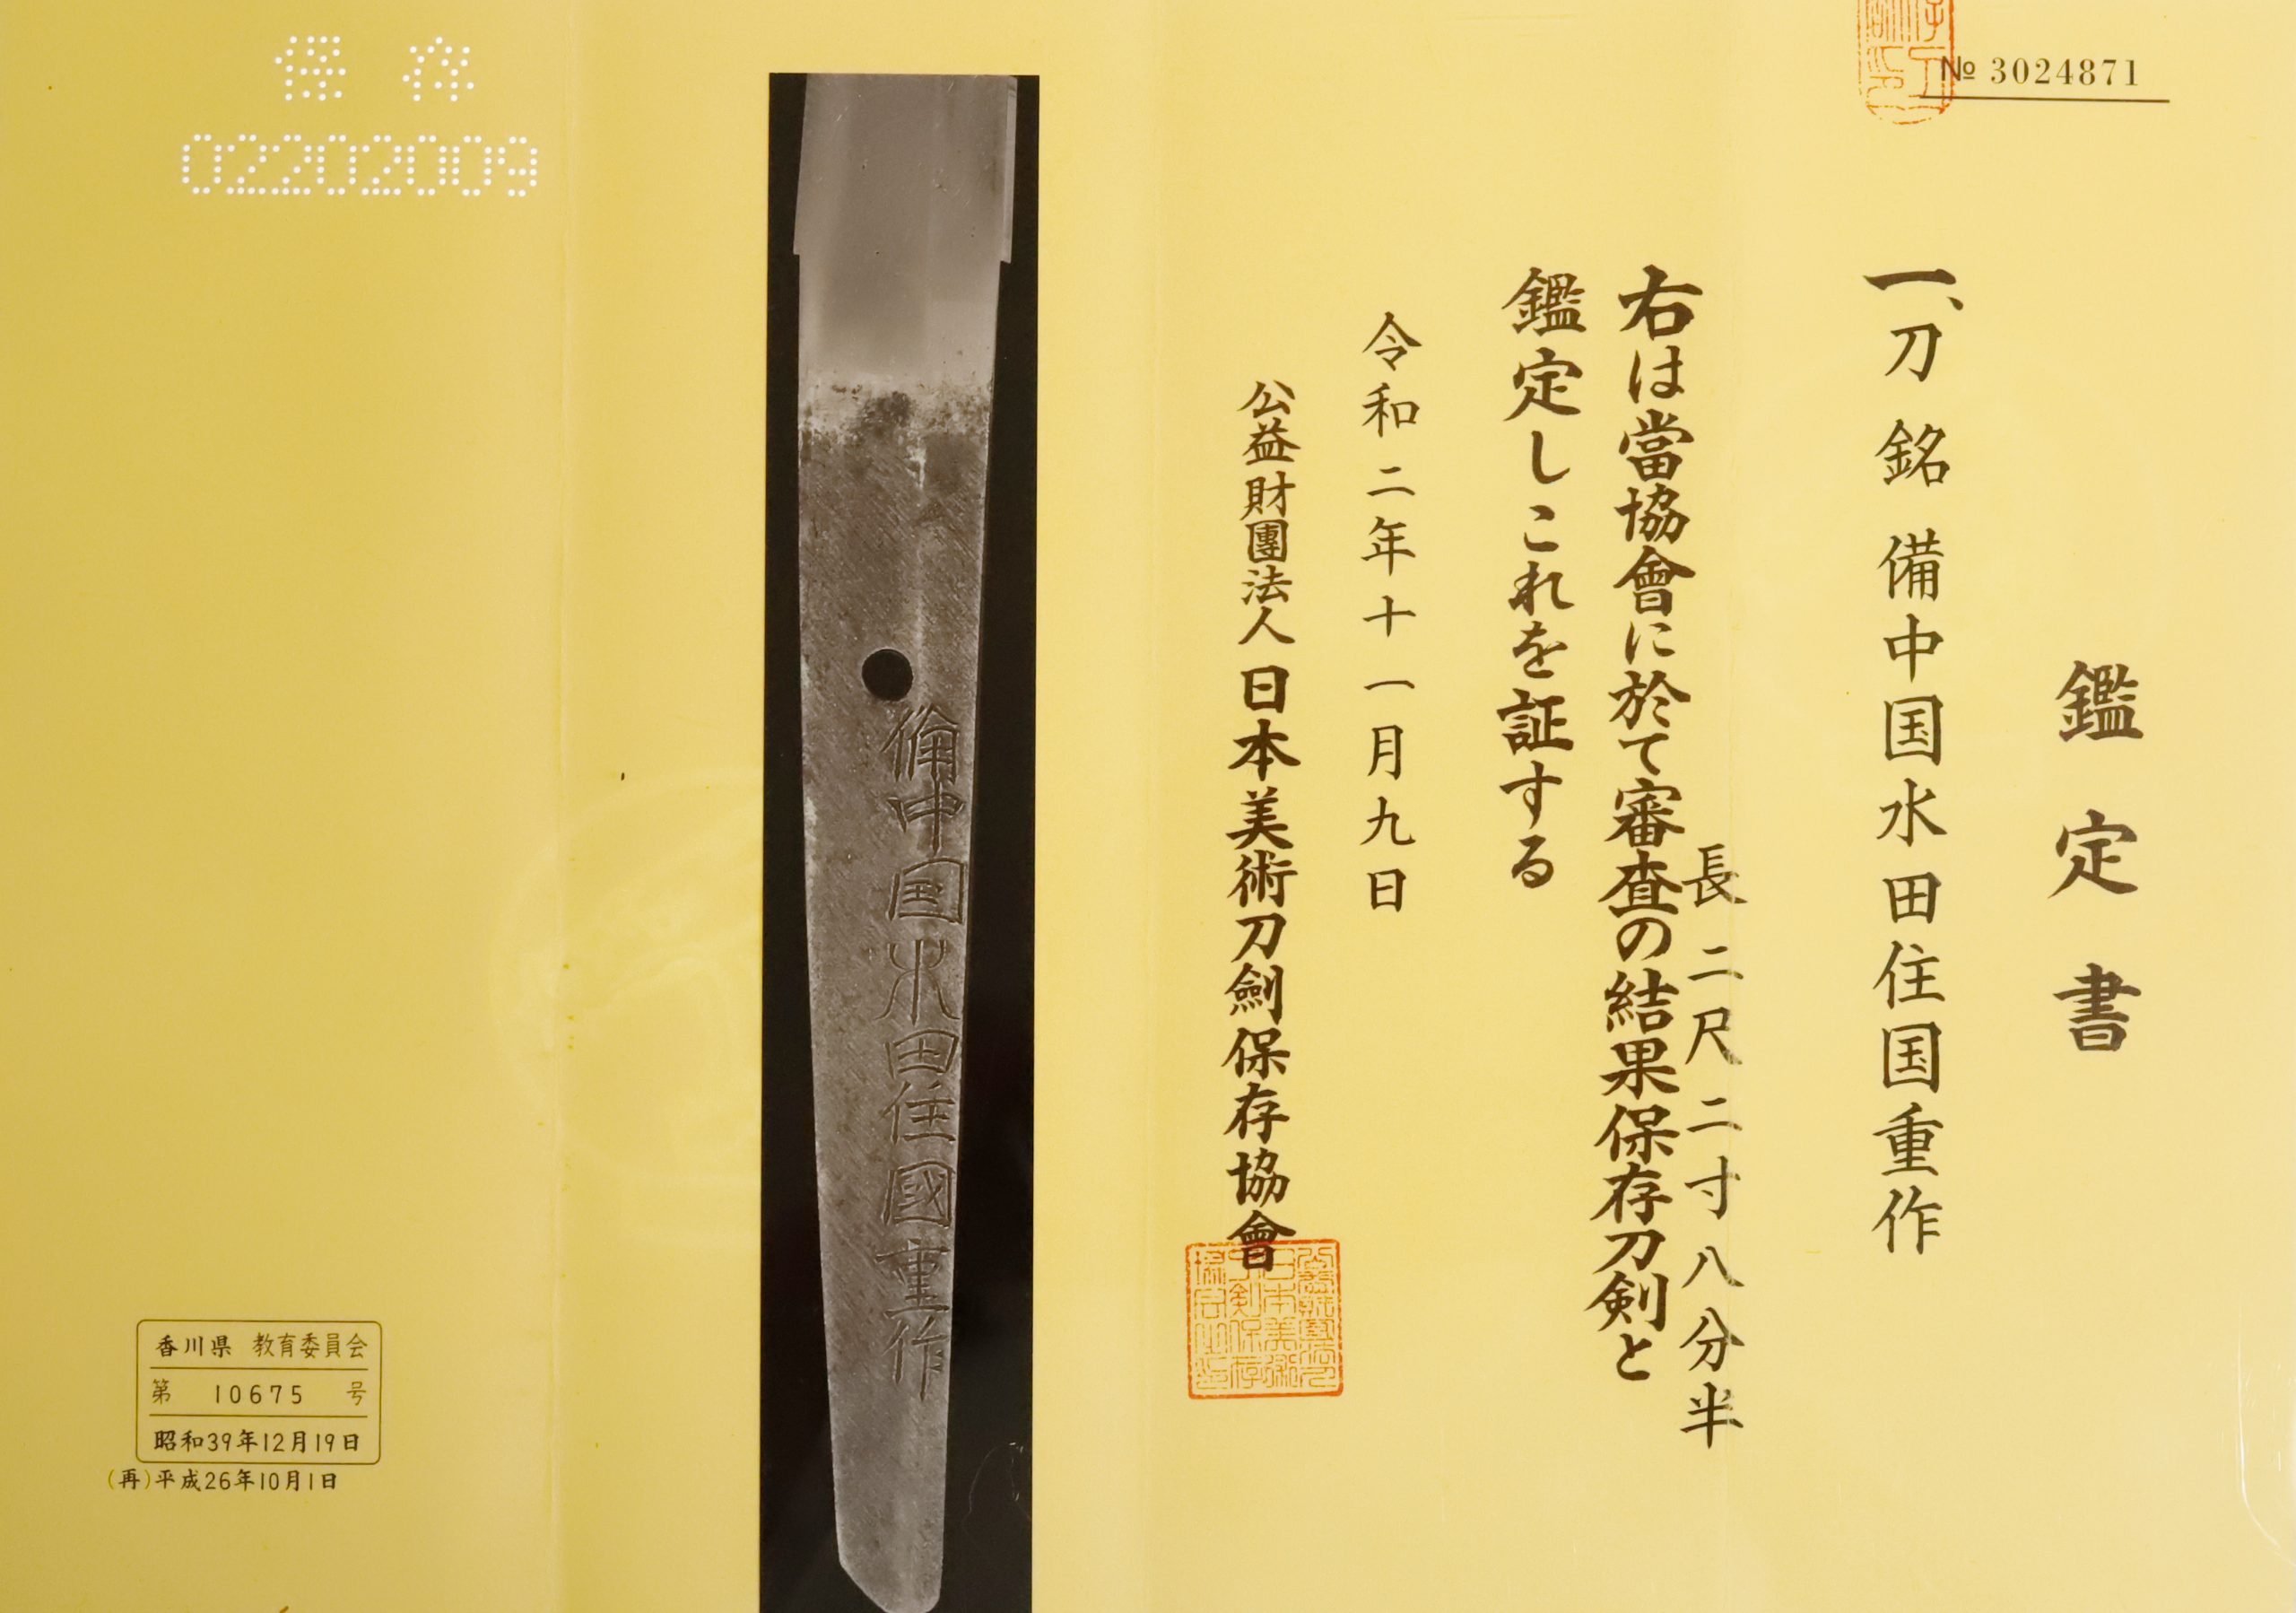 № 3024871
鑑定書
一、刀 銘 備中国水田住国重作
長 二尺二寸八分半
右は當協會に於て審査の結果保存刀剣と
鑑定しこれを証する
令和二年十一月九日
公益財團法人 日本美術刀劍保存協會
備中国水田住國重作
保存
02202009
香川県 教育委員会
第 10675 号
昭和39年12月19日
(再)平成26年10月1日